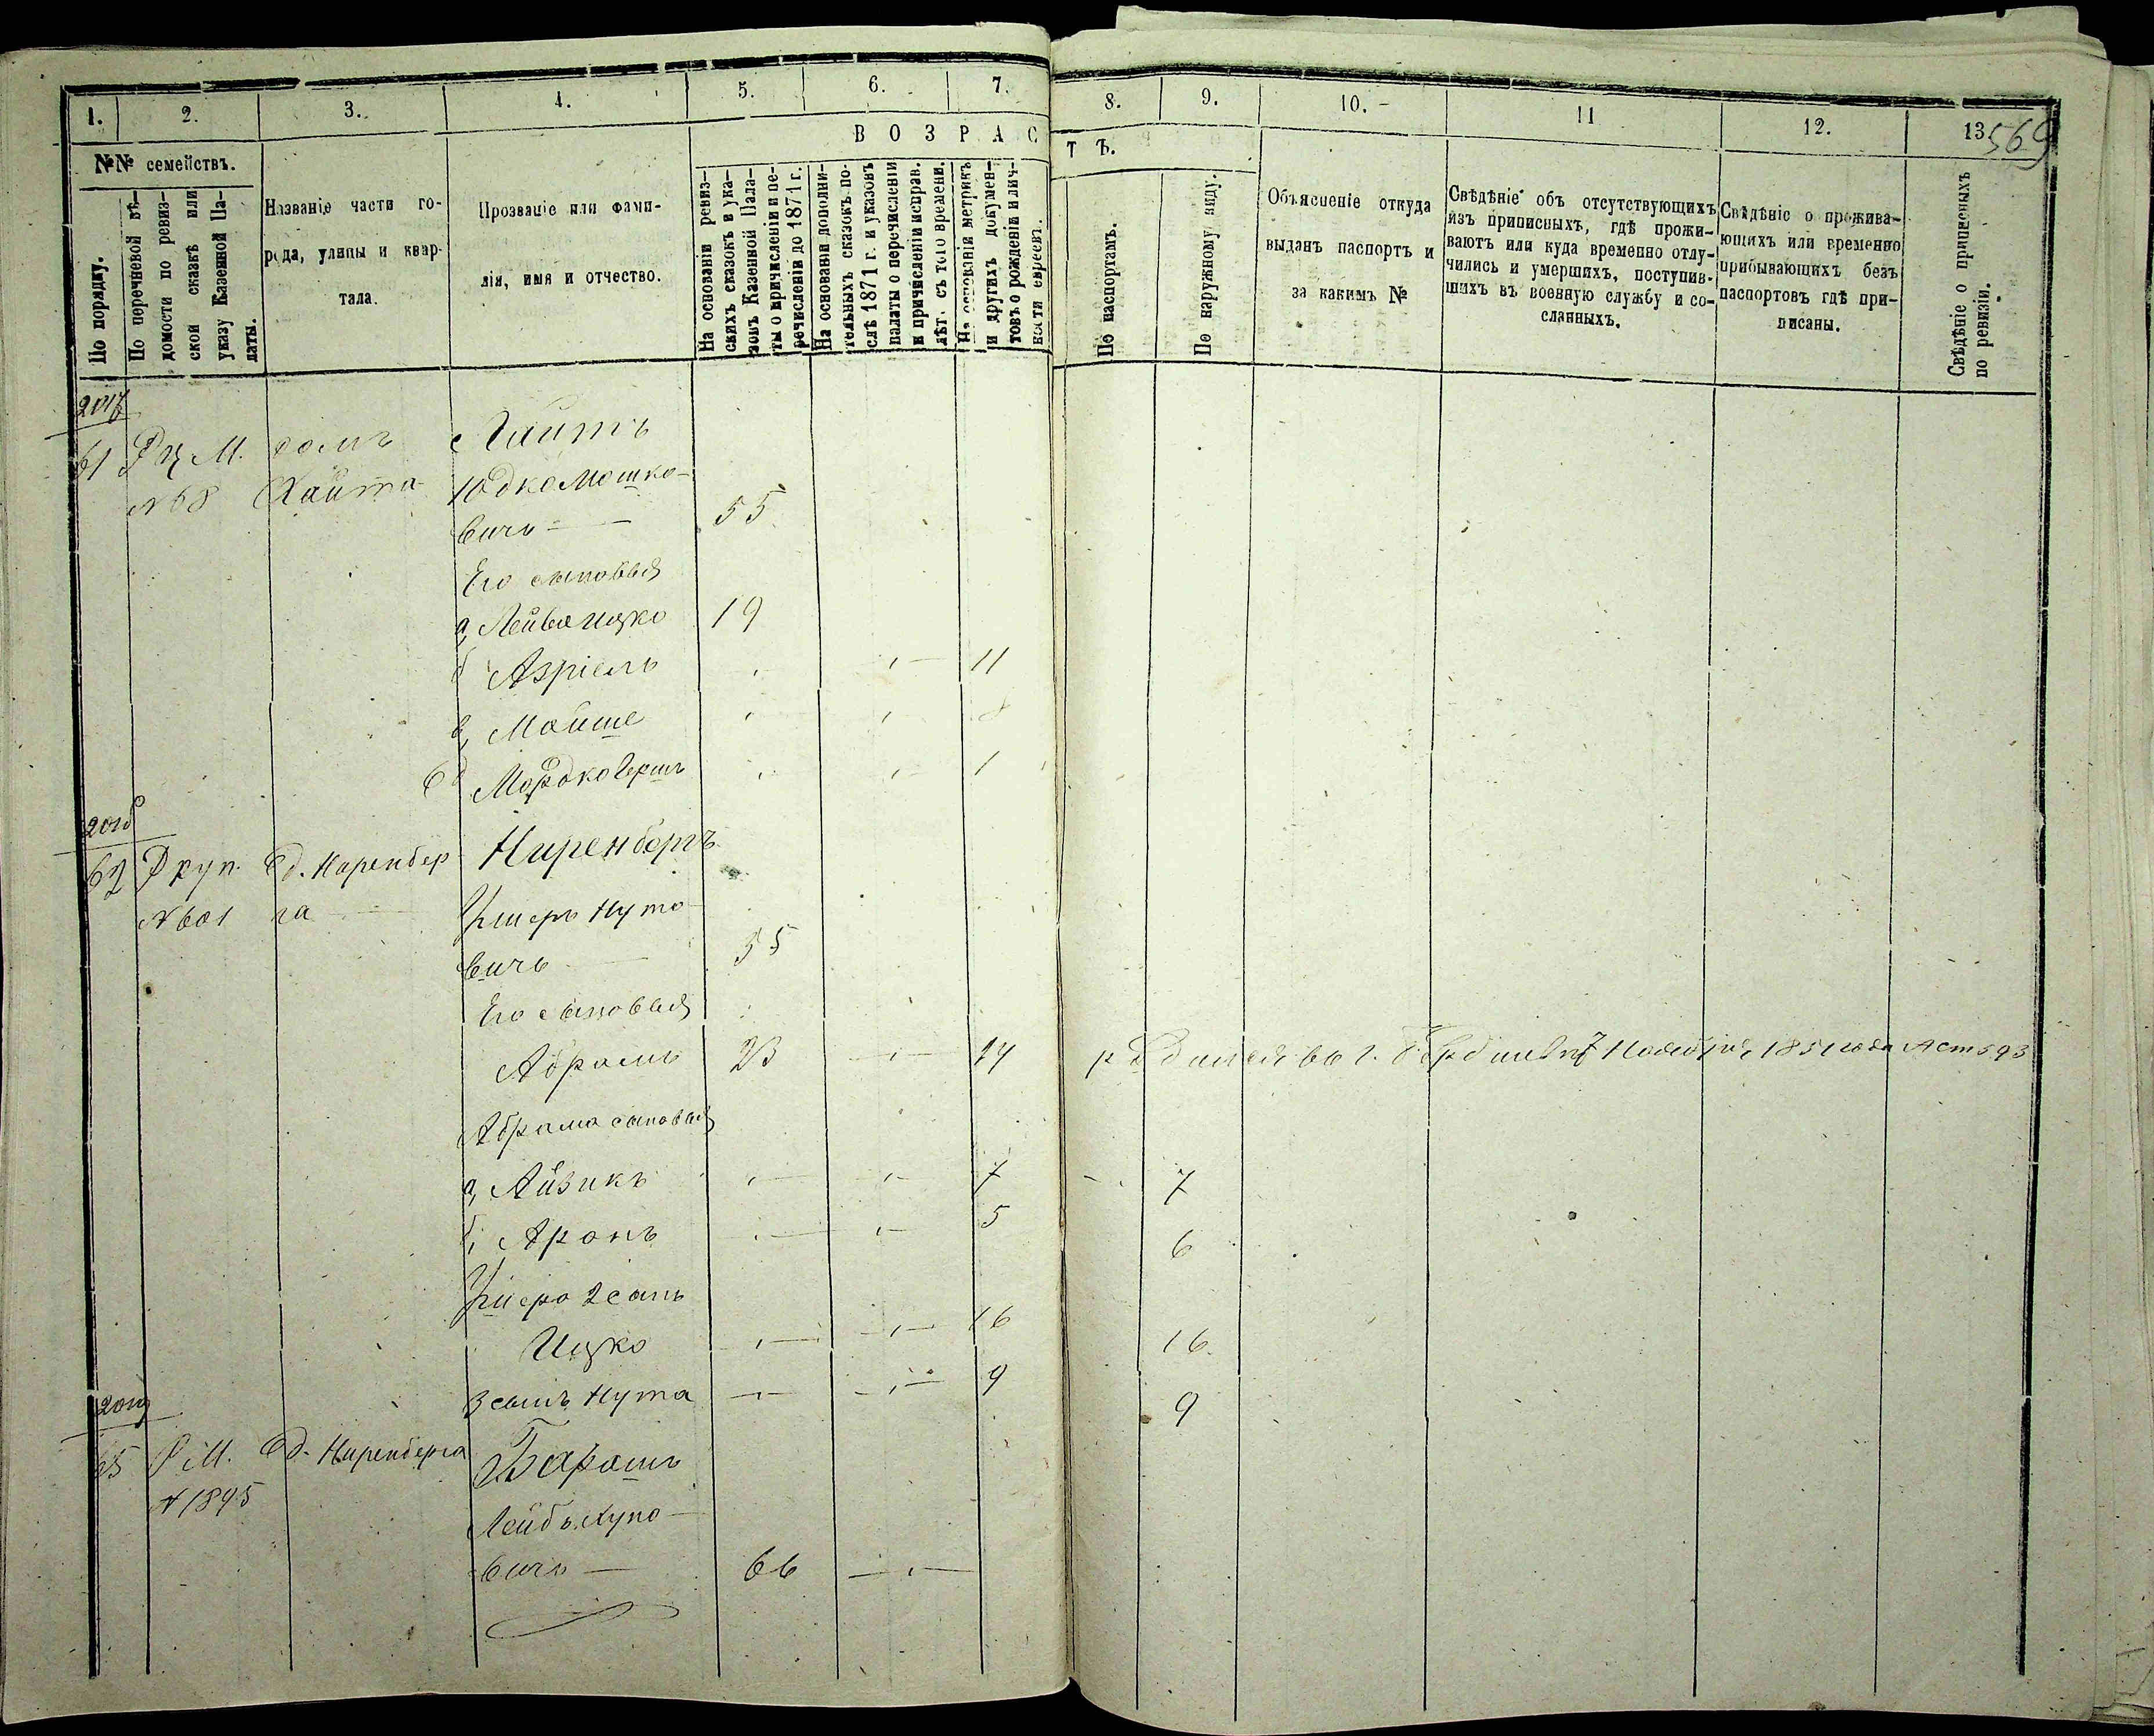 1. 2. 3. 4. 5. 6. 7. 8. 9. 10. 11 12. 13.
569
ВОЗРАСТЪ.
№№ семействъ.
По порядку.
По перечневой вѣ-
домости по ревиз-
ской сказкѣ или
указу Казенной Па-
латы.
Названіе части го-
рода, улицы и квар-
тала.
Прозваніе или фами-
лія, имя и отчество.
На основаніи ревиз-
скихъ сказокъ и ука-
зовъ Казенной Пала-
ты о причисленіи и пе-
речисленіи до 1871 г.
На основаніи дополни-
тельныхъ сказокъ по-
слѣ 1871 г. и указовъ
палаты о перечисленіи
и причисленіи исправ.
лѣт. съ того времени.
На основаніи метрикъ
и другихъ докумен-
товъ о рожденіи и лич-
ности евреевъ.
По паспортамъ.
По наружному виду.
Объясненіе откуда
выданъ паспортъ и
за какимъ №
Свѣдѣніе объ отсутствующихъ
изъ приписныхъ, гдѣ прожи-
ваютъ или куда временно отлу-
чились и умершихъ, поступив-
шихъ въ военную службу и со-
сланныхъ.
Свѣдѣніе о прожива-
ющихъ или временно
прибывающихъ безъ
паспортовъ гдѣ при-
писаны.
Свѣдѣніе о приписныхъ
по ревизіи.
61 М. домъ Хаитъ
№ 68 Хаита Юдко Мошко-
вичъ — 55
Его сыновья
а, Лейва Ицко 19
б Азріель 11
в, Мойше 8
Мордко Гершъ 1
62 куп. д. Ниренбер Ниренбергъ
№ 601 га Ушеръ Нуто-
вичъ — 55
Его сыновья
Абрамъ 23 24 1851 года
Абрама сыновья
а, Айзикъ 7 7
б, Аронъ 5 6
Ушера 2 сынъ
Ицко 16 16
3 сынъ Нута 9 9
М. д. Ниренберга Барашъ
№ 1895
Лейбъ
вичъ — 66